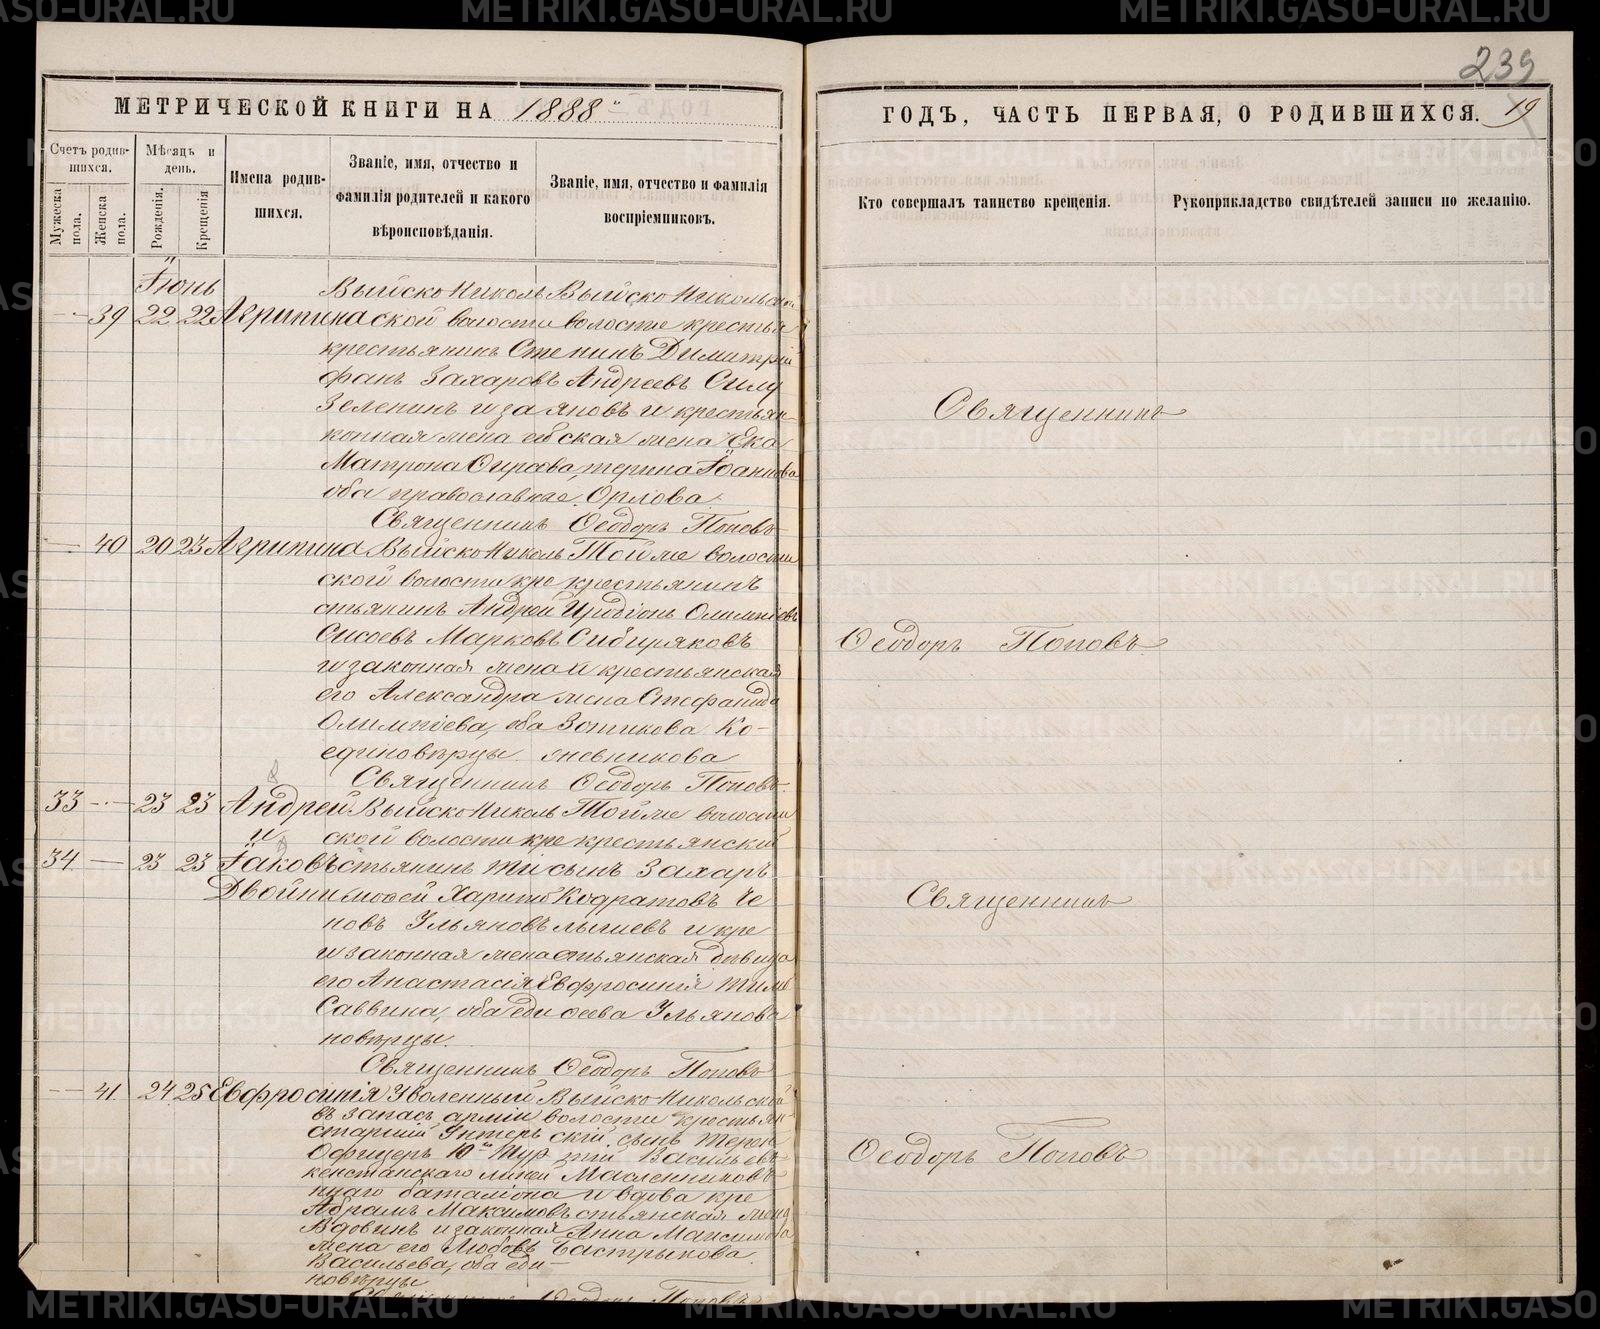 239
МЕТРИЧЕСКОЙ КНИГИ НА 1888й
ГОДЪ, ЧАСТЬ ПЕРВАЯ, О РОДИВШИХСЯ. 19
Счетъ родив-
шихся.
Мужеска пола.
Женска пола.
Мѣсяцъ и
день.
Рожденія.
Крещенія
Имена родив-
шихся.
Званіе, имя, отчество и
фамилія родителей и какого
вѣроисповѣданія.
Званіе, имя, отчество и фамилія
воспріемниковъ.
Кто совершалъ таинство крещенія.
Рукоприкладство свидѣтелей записи по желанію.
Іюнь
39 22 22 Агрипина
Выйско Николь
ской волости
крестьянинъ Сте
фанъ Захаровъ
Зеленинъ и за
конная жена его
Матрона
оба православные.
Выйско Никольской
волости крестья
нинъ Димитрій
Андреевъ Силу
яновъ и крестьян
ская жена Ека
терина Іоаннова
Орлова.
Священникъ Ѳеодоръ Поповъ
40 20 23 Агрипина
Выйско Николь
ской волости кре
стьянинъ Андрей
Сысоевъ Марковъ
и законная жена
его Александра
Олимпіева, оба
единовѣрцы
Той же волости
крестьянинъ
Иродіонъ Олимпіевъ
Сибиряковъ
и крестьянская
жена Стефанида
Зотикова Ко-
жевникова
Священникъ Ѳеодоръ Поповъ
33 23 23 Андрей
и
34 23 23 Іаковъ
Двойни
Выйско Николь
ской волости кре
стьянинъ Ти
моѳей Харито
новъ Ульяновъ
и законная жена
его Анастасія
Саввина, оба еди
новѣрцы.
Той же волости
крестьянскій
сынъ Захаръ
Кодратовъ Че
пышевъ и кре
стьянская дѣвица
Евфросинія Тимо
ѳеева Ульянова
Священникъ Ѳеодоръ Поповъ
41 24 25 Евфросинія
Уволенный
въ запасъ арміи
старшій Унтеръ
Офицеръ 10го Тур
кестанскаго линей
наго баталіона
Абрамъ Максимовъ
Вдовинъ и законная
жена его Любовь
Васильева, оба еди-
новѣрцы
Выйско Никольской
волости крестьян
скій сынъ Терен
тій Васильевъ
Масленниковъ
и вдова кре
стьянская
Анна Максимова
Бастрыкова.
Священникъ Ѳеодоръ Поповъ
Священникъ
Ѳеодоръ Поповъ
Священникъ
Ѳеодоръ Поповъ
METRIKI.GASO-URAL.RU